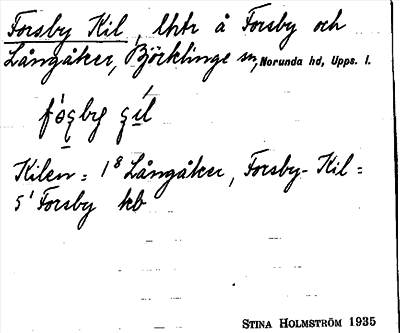 Forsby Kil, lhtr å Forsby och
Långåker, Björklinge sn, Norunda hd, Upps. l.
Kilen = 1⁸ Långåker, Forsby-Kil =
5¹ Forsby kb
STINA HOLMSTRÖM 1935